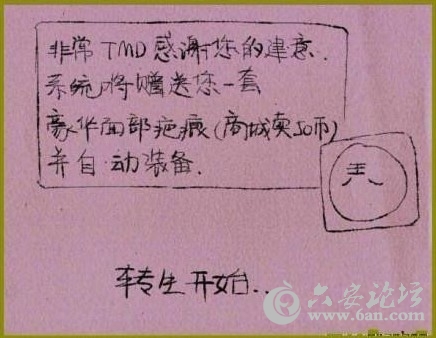 非常TMD感谢您的建意.
系统将赠送您一套
豪华面部疤痕(商城卖50币)
并自动装备.
王八
转生开始..
六安论坛
www.6an.com